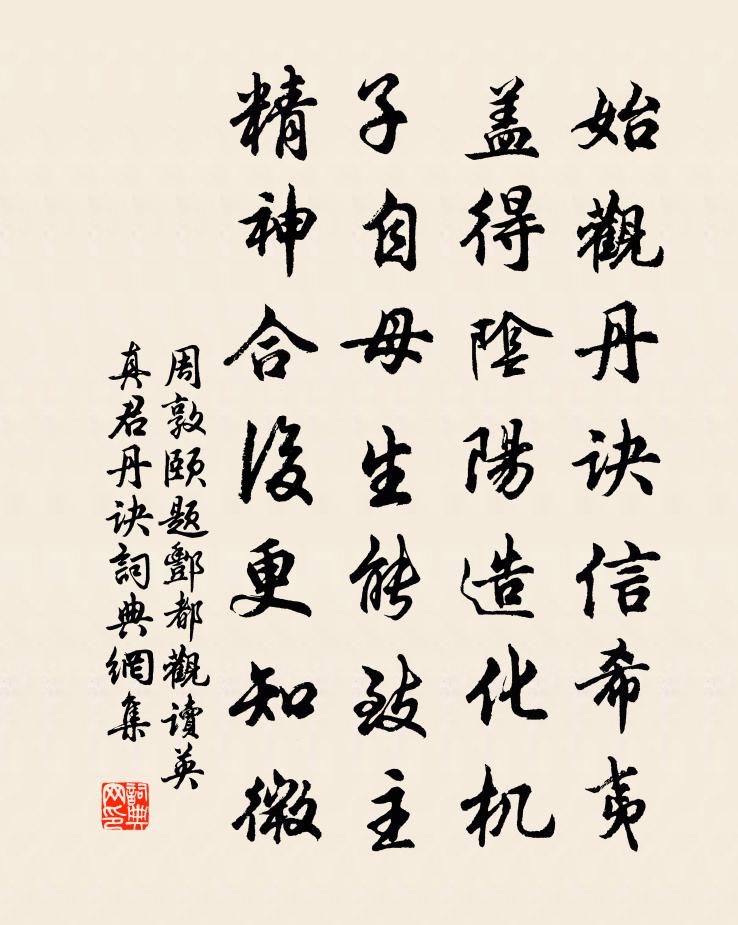 始觀丹訣信希夷
盖得陰陽造化机
子自母生能致主
精神合後更知微
周敦頤題酆都觀讀英
真君丹訣詞典網集
詞典
网印